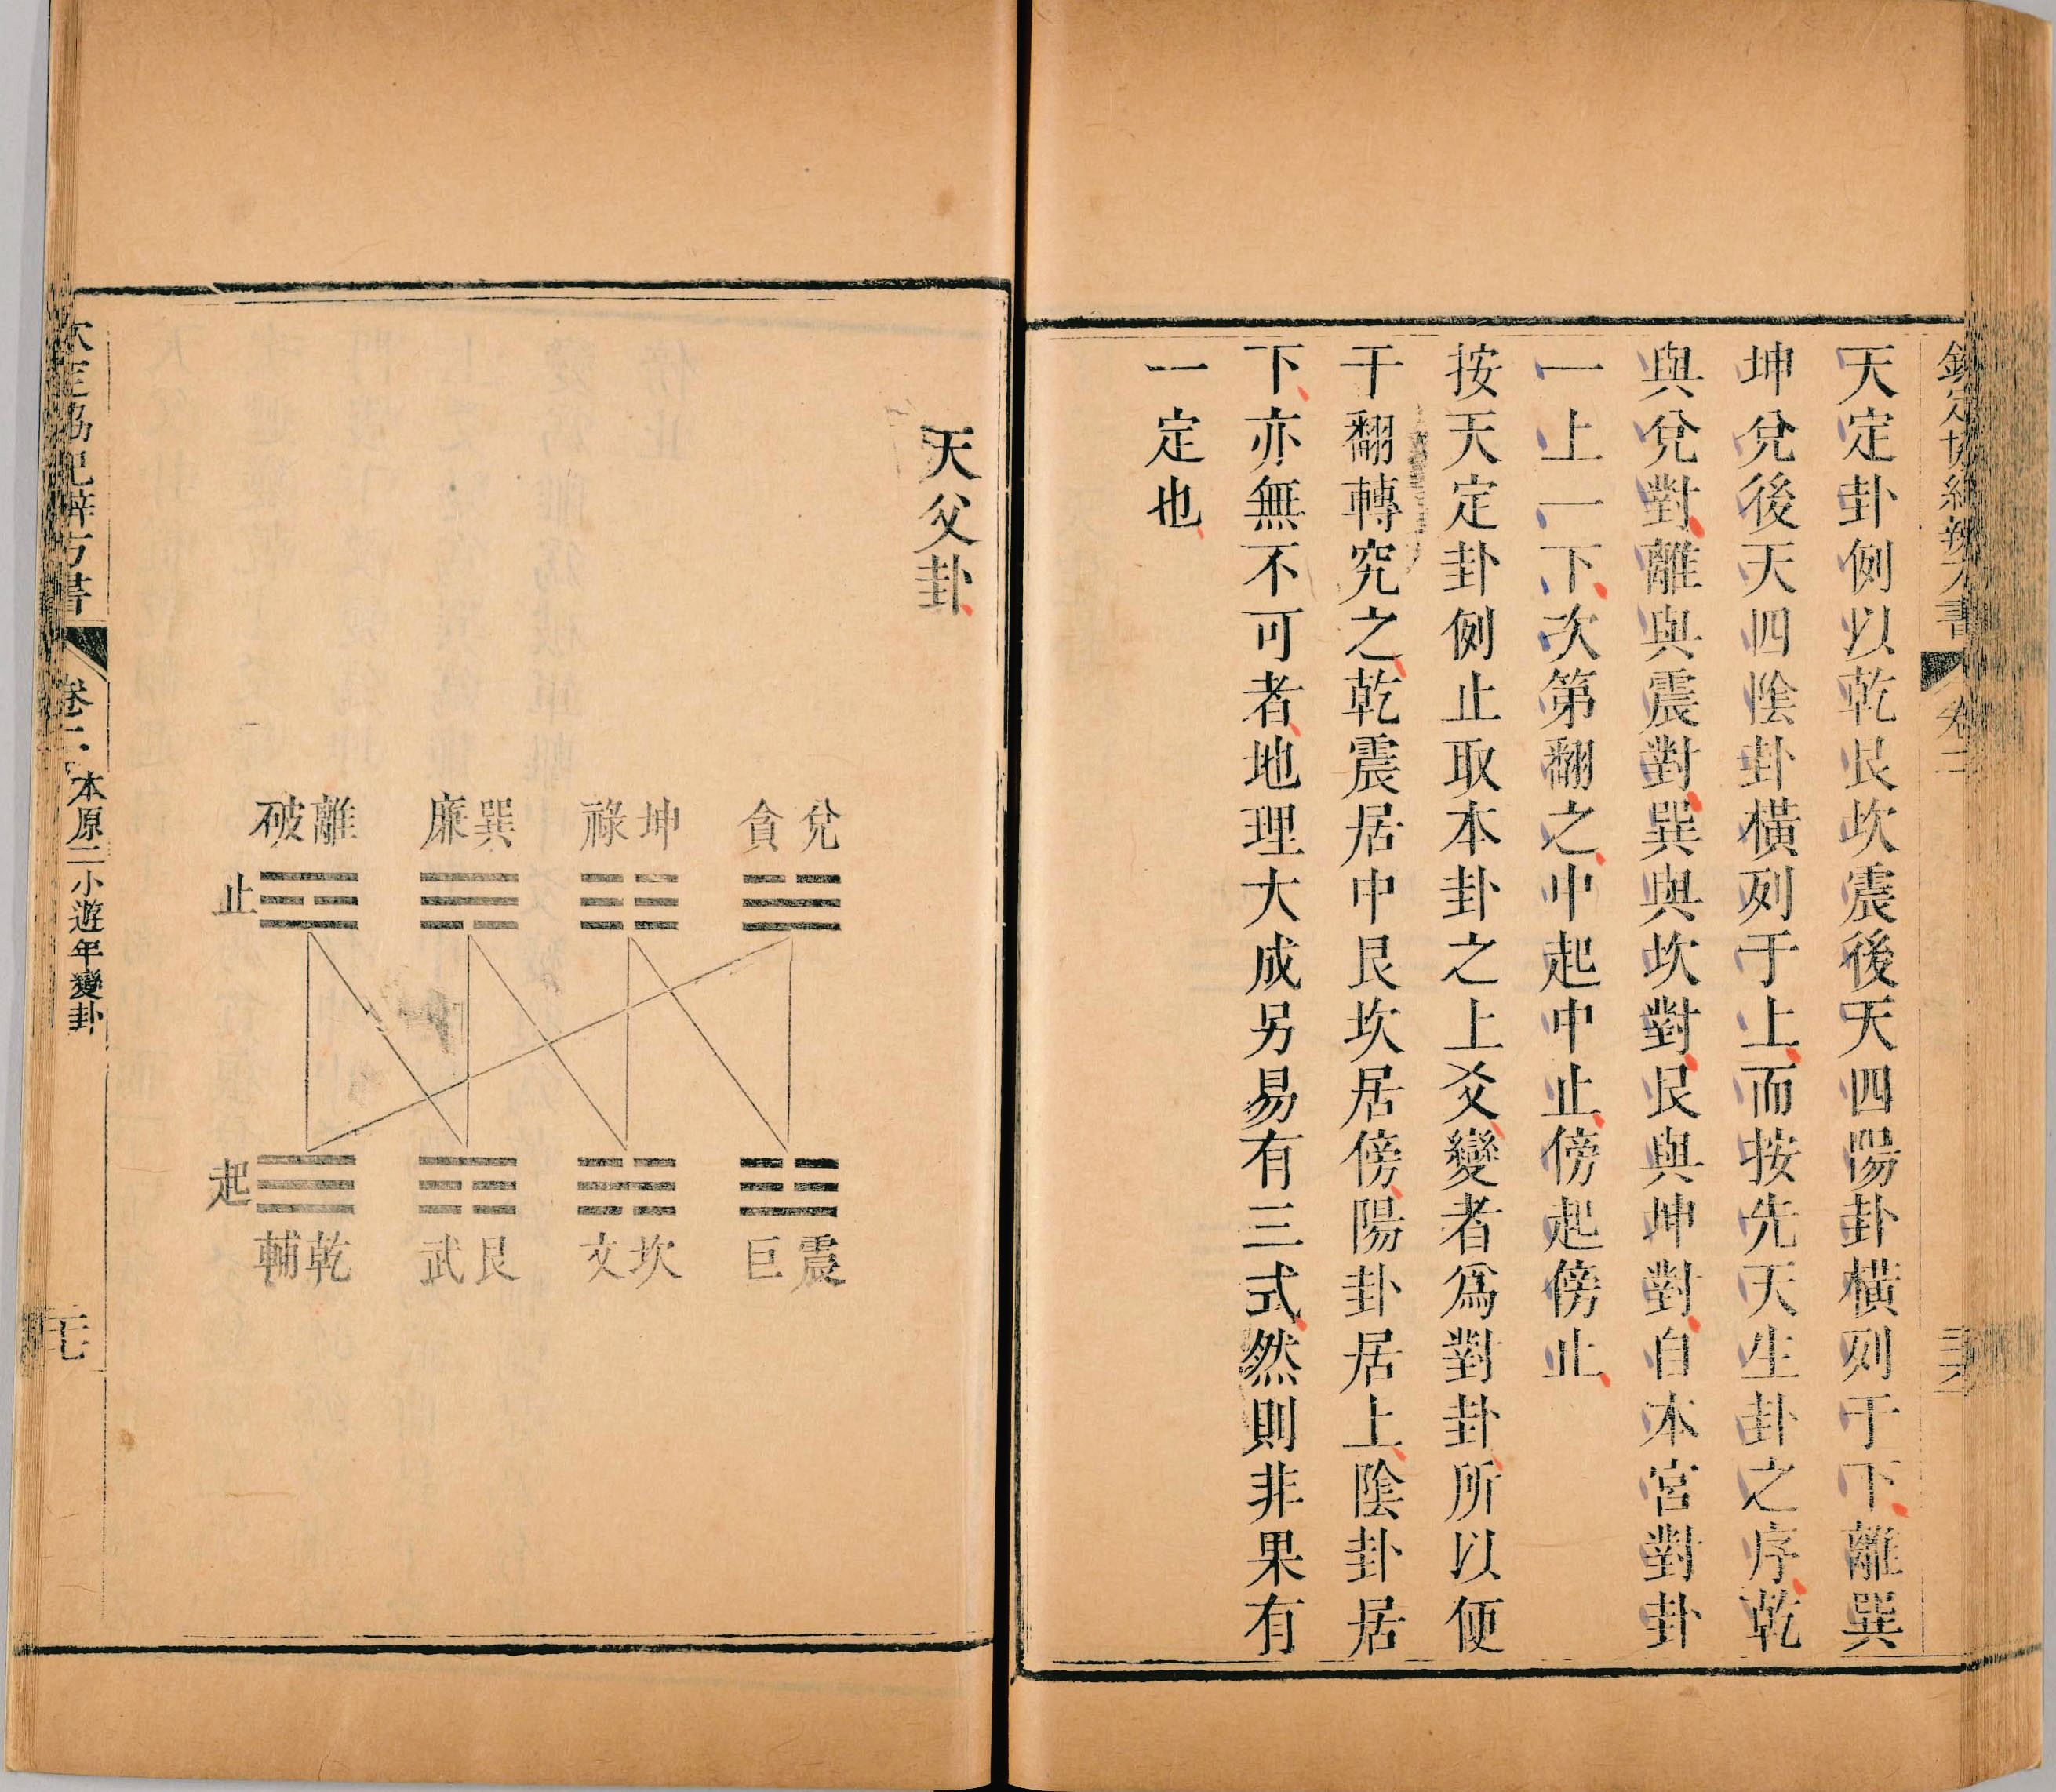 欽定協紀辨方書 卷二
天定卦例以乾艮坎震後天四陽卦橫列于下離巽
坤兌後天四陰卦橫列于上而按先天生卦之序乾
與兌對離與震對巽與坎對艮與坤對自本宮對卦
一上一下次第翻之中起中止傍起傍止
按天定卦例止取本卦之上爻變者爲對卦所以便
于翻轉究之乾震居中艮坎居傍陽卦居上陰卦居
下亦無不可者地理大成另易有三式然則非果有
一定也
天父卦
兌 貪
坤 祿
巽 廉
離 破
止
震 巨
坎 文
艮 武
乾 輔
起
欽定協紀辨方書 卷二 本原二 小遊年變卦